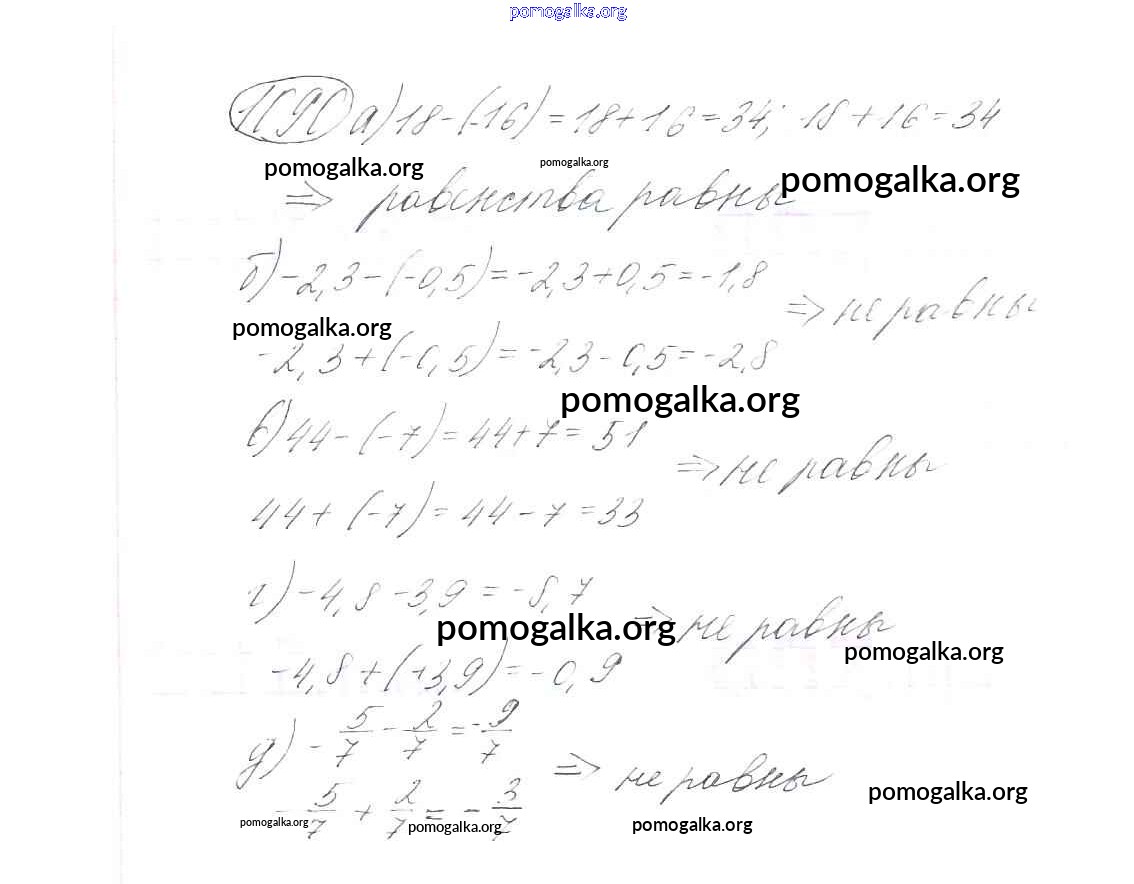 pomogalka.org
1090 а) 18-(-16)=18+16=34; 18+16=34
pomogalka.org pomogalka.org pomogalka.org
⇒ равенства равны
б) -2,3-(-0,5)=-2,3+0,5=-1,8
⇒ не равны
pomogalka.org
-2,3+(-0,5)=-2,3-0,5=-2,8
pomogalka.org
в) 44-(-7)=44+7=51
⇒ не равны
44+(-7)=44-7=33
г) -4,8-3,9=-8,7
pomogalka.org ⇒ не равны
pomogalka.org
-4,8+(+3,9)=-0,9
д) -5/7-2/7=-9/7
⇒ не равны
pomogalka.org
-5/7+2/7=-3/7
pomogalka.org pomogalka.org pomogalka.org